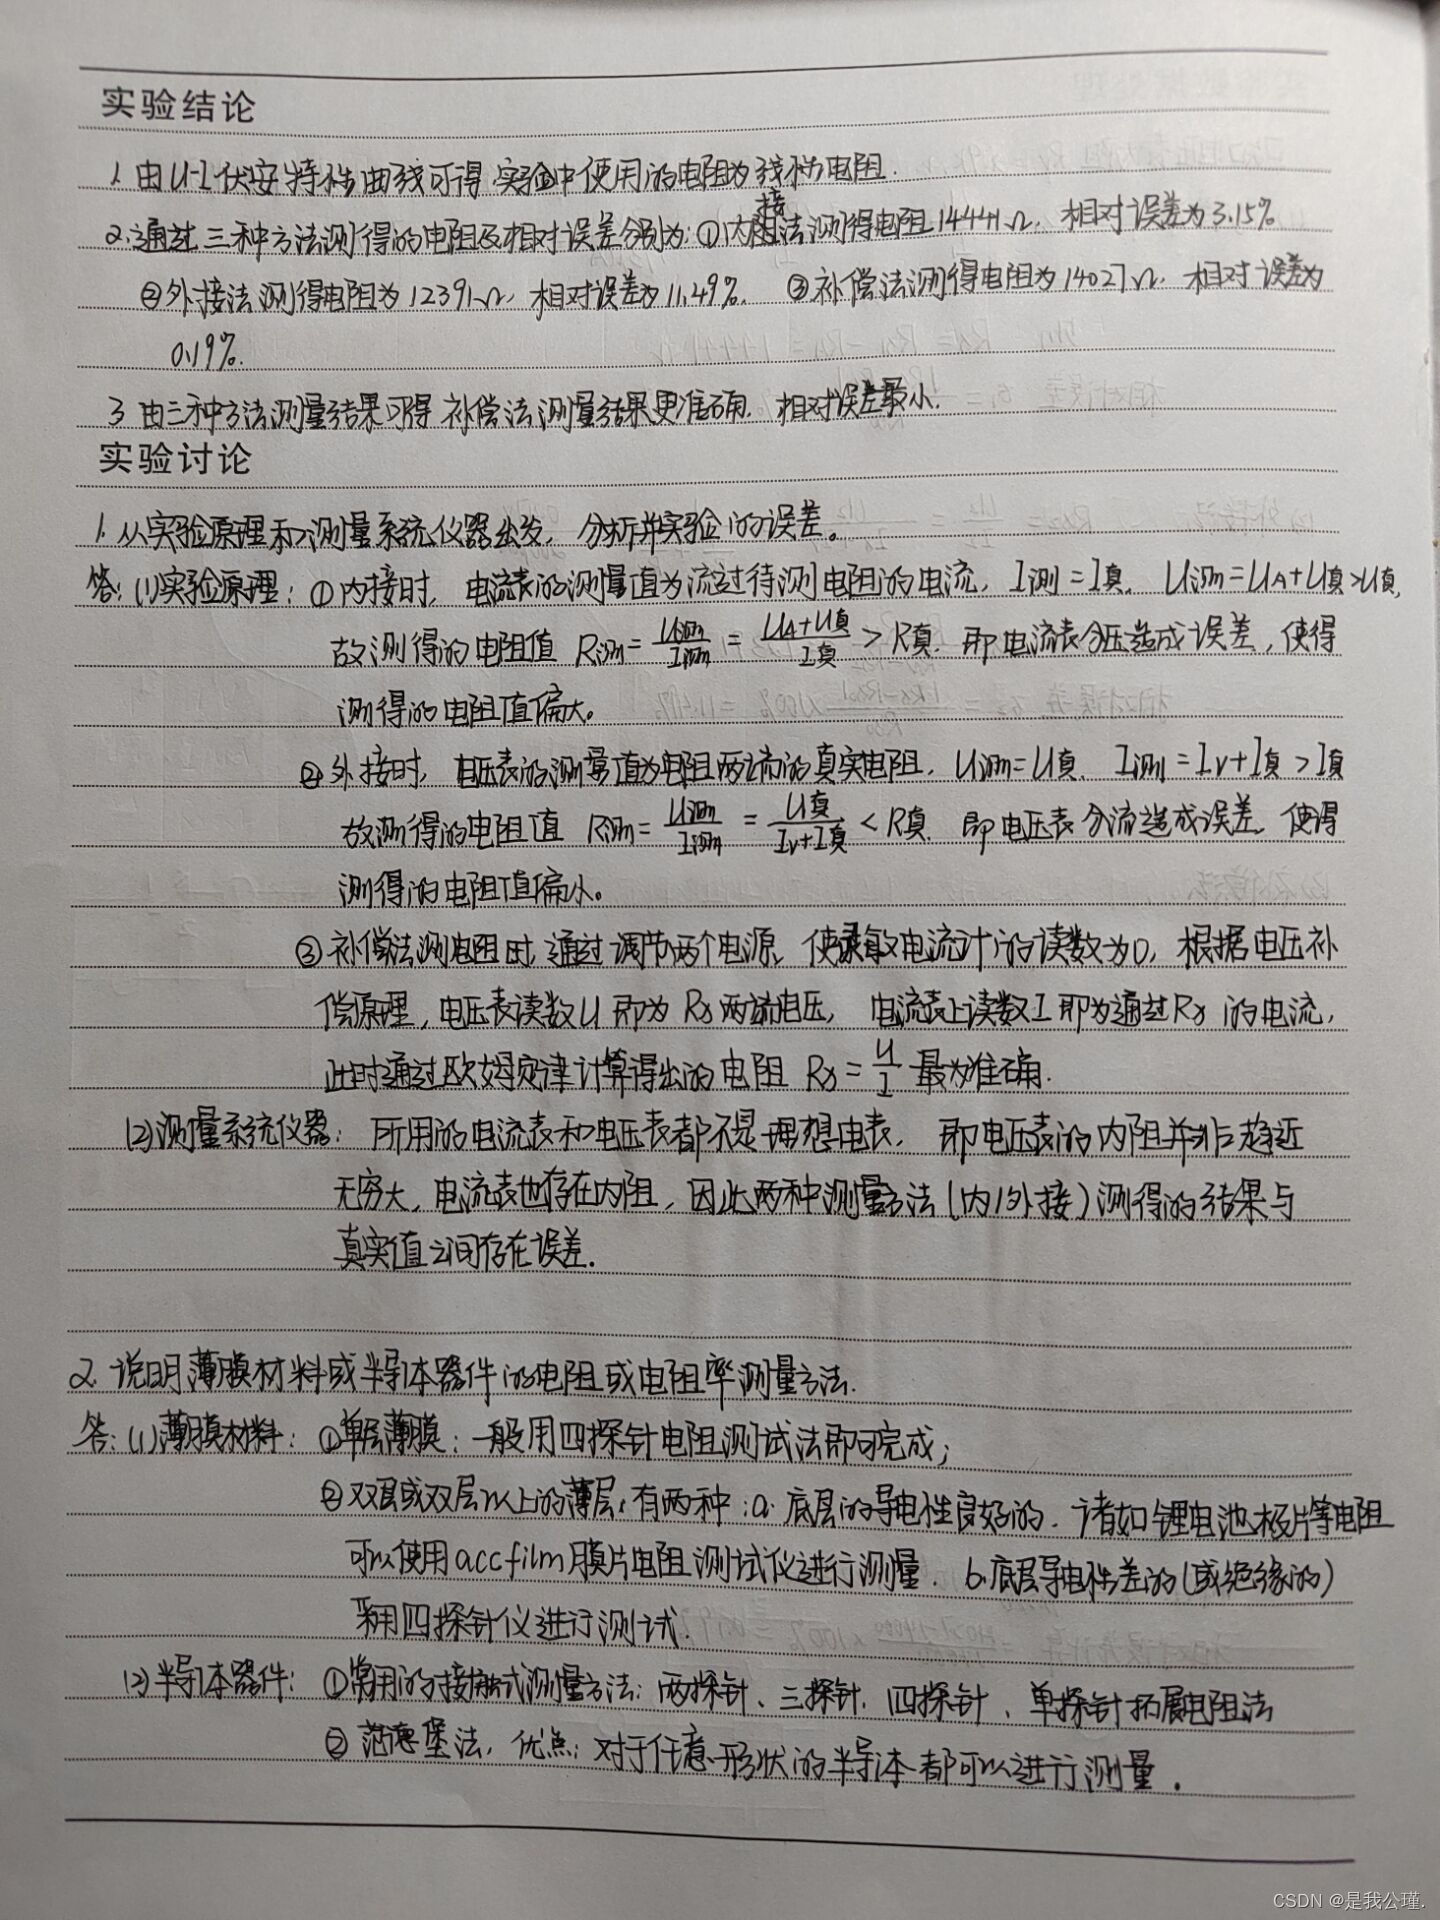 实验结论
1. 由U-I伏安特性曲线可得 实验中使用的电阻为线性电阻.
2. 通过三种方法测得的电阻及相对误差分别为: ①内接法测得电阻14441Ω, 相对误差为3.15%
②外接法测得电阻为12391Ω, 相对误差为11.49%. ③补偿法测得电阻为14027Ω, 相对误差为
0.19%.
3 由三种方法测量结果可得 补偿法测量结果更准确. 相对误差最小.
实验讨论
1. 从实验原理和测量系统仪器出发, 分析并实验的误差。
答: (1)实验原理: ①内接时, 电流表的测量值为流过待测电阻的电流, I测=I真. U测=UA+U真>U真,
故测得的电阻值 R测=U测/I测=(UA+U真)/I真>R真. 即电流表分压造成误差, 使得
测得的电阻值偏大。
②外接时, 电压表的测量值为电阻两端的真实电阻, U测=U真. I测=Iv+I真>I真
故测得的电阻值 R测=U测/I测=U真/(Iv+I真)<R真. 即电压表分流造成误差, 使得
测得的电阻值偏小。
③补偿法测电阻时, 通过调节两个电源, 使灵敏电流计的读数为0, 根据电压补
偿原理, 电压表读数U即为Rx两端电压, 电流表上读数I即为通过Rx的电流,
此时通过欧姆定律计算得出的电阻 Rx=U/I 最为准确.
(2)测量系统仪器: 所用的电流表和电压表都不是理想电表, 即电压表的内阻并非趋近
无穷大, 电流表也存在内阻, 因此两种测量方法(内/外接)测得的结果与
真实值之间存在误差.
2. 说明薄膜材料或半导体器件的电阻或电阻率测量方法.
答: (1)薄膜材料: ①单层薄膜: 一般用四探针电阻测试法即可完成;
②双层或双层以上的薄层, 有两种: a. 底层的导电性良好的. 诸如锂电池极片等电阻
可以使用accfilm膜片电阻测试仪进行测量. b.底层导电性差的(或绝缘的)
采用四探针仪进行测试.
(2)半导体器件: ①常用的接触式测量方法: 两探针、三探针. 四探针、单探针拓展电阻法
②范德堡法, 优点: 对于任意形状的半导体都可以进行测量.
CSDN @是我公瑾.